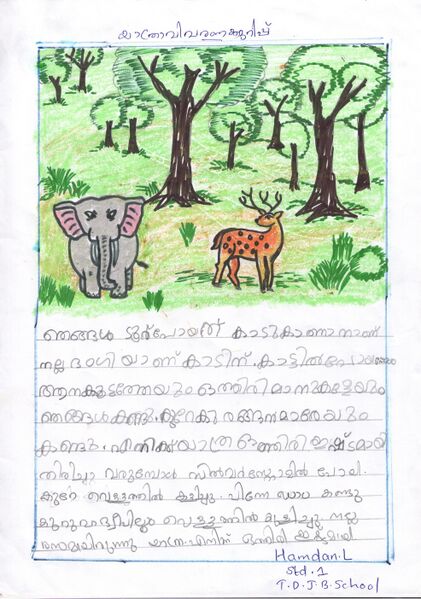 യാത്രാവിവരണക്കുറിപ്പ്
ഞങ്ങൾ ടൂർപോയത് കാടുകാണാനാണ്
നല്ല ഭംഗിയാണ് കാടിന്. കാട്ടിൽ
ആനക്കൂട്ടത്തേയും ഒത്തിരി മാനുകളേയും
ഞങ്ങൾ കണ്ടു. കുറേ കുരങ്ങന്മാരേയും
കണ്ടു. എനിക്ക് യാത്ര ഒത്തിരി ഇഷ്ടമായി
തിരിച്ചു വരുമ്പോൾ സിൽവർ പോയി.
കുറേ വെള്ളത്തിൽ കളിച്ചു. പിന്നേ ഡാം കണ്ടു
വെള്ളത്തിൽ കുളിച്ചു നല്ല
രസമായിരുന്നു യാത്ര. എനിക്ക് ഒത്തിരി
Hamdan.L
Std.1
T.D.J.B.School